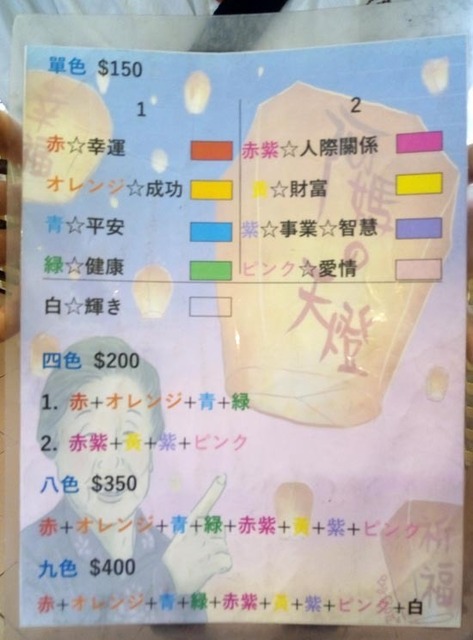 單色 $150
1
2
赤☆幸運
赤紫☆人際關係
オレンジ☆成功
黃☆財富
青☆平安
紫☆事業☆智慧
緑☆健康
ピンク☆愛情
白☆輝き
四色 $200
1. 赤+オレンジ+青+緑
2. 赤紫+黃+紫+ピンク
八色 $350
赤+オレンジ+青+緑+赤紫+黃+紫+ピンク
九色 $400
赤+オレンジ+青+緑+赤紫+黃+紫+ピンク+白
幸福
媽の
天燈
祈福